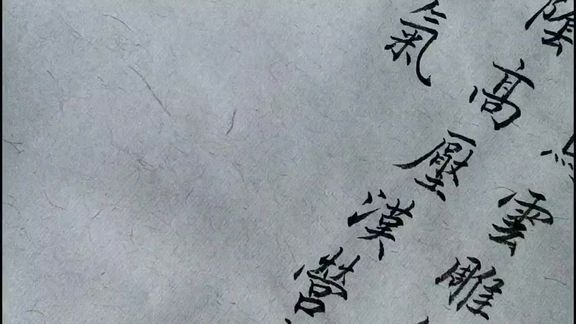 雲雕
陰高壓漢營
氣